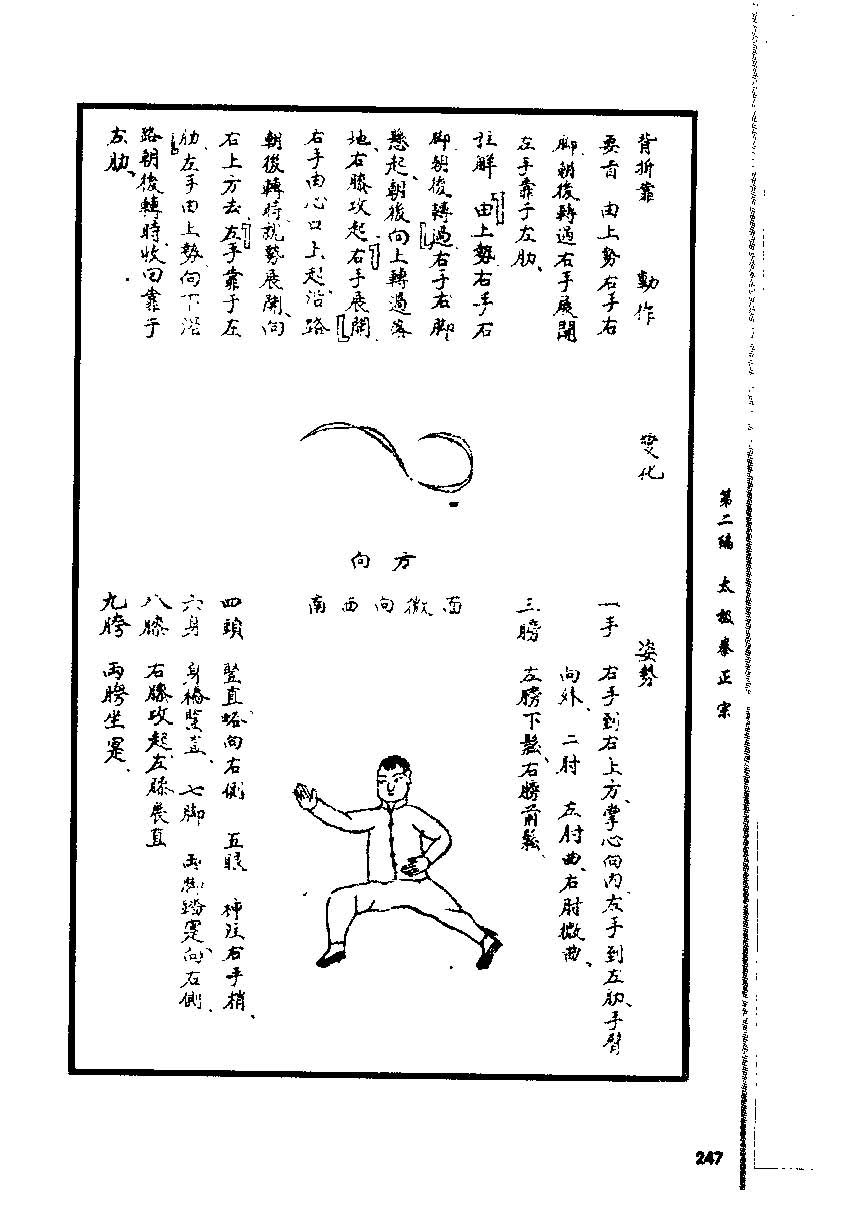 背折靠 動作
要旨 由上勢右手右
脚朝後轉過右手展開
左手靠于左肋、
註解 由上勢右手右
脚朝後轉過右手右脚
懸起、朝後向上轉過落
地、右膝攻起右手展開
右手由心口上起沿路
朝後轉時就勢展開、向
右上方去、左手靠于左
肋、左手由上勢向下沿
路朝後轉時、收回靠于
左肋、
變化
向方
南西向微面
姿勢
一手 右手到右上方、掌心向內、左手到左肋、手臂
向外、二肘 左肘曲、右肘微曲、
三膀 左膀下鬆、右膀前鬆、
四頭 豎直、向右側 五眼 神注右手梢、
六身 身樁豎直、七脚 兩脚踏寔、向右側、
八膝 右膝攻起、左膝展直
九胯 兩胯坐寔、
第二編 太极拳正宗
247